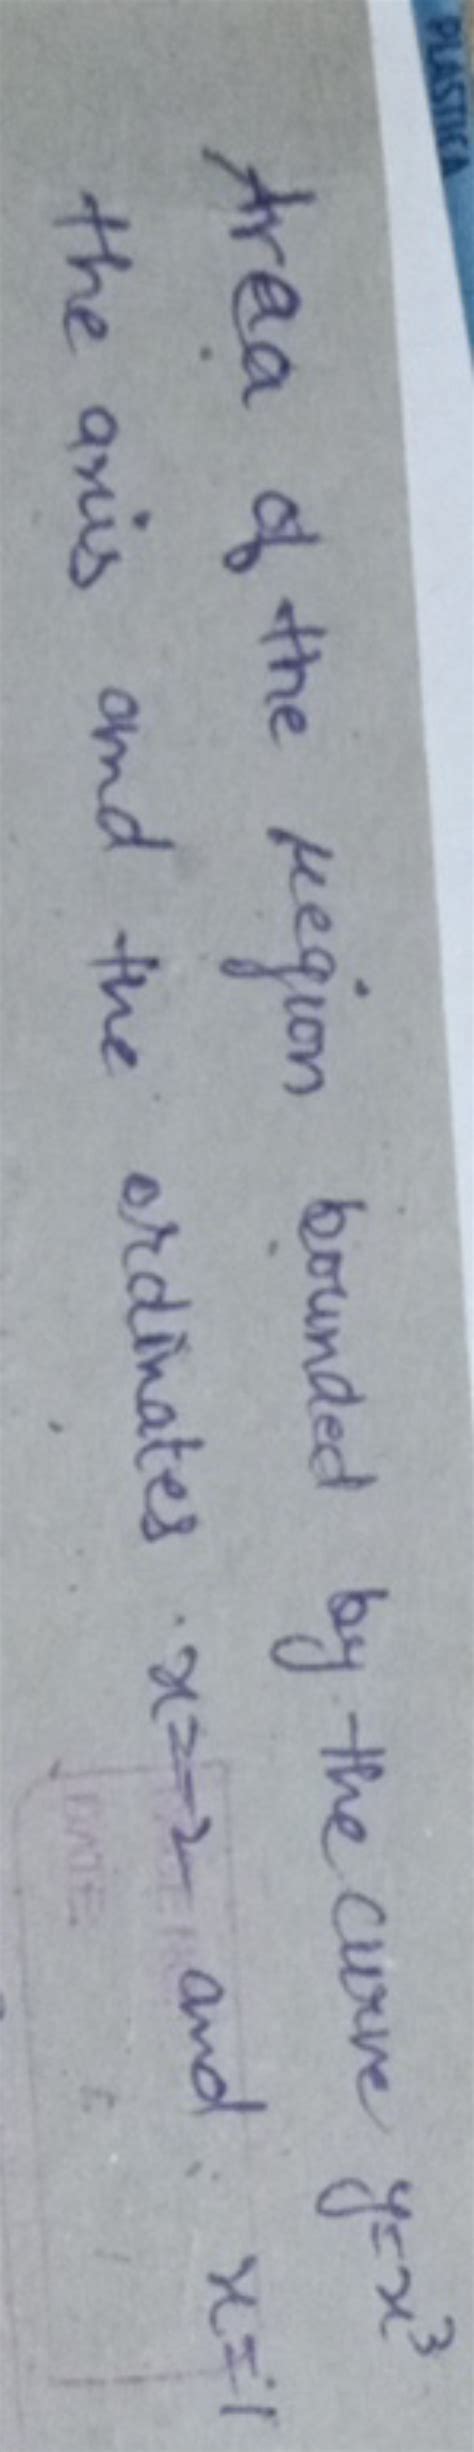 PLASTICA
Area of the region bounded by the curve y=x³
the axis and the ordinates x=-2 and x=1
DATE: